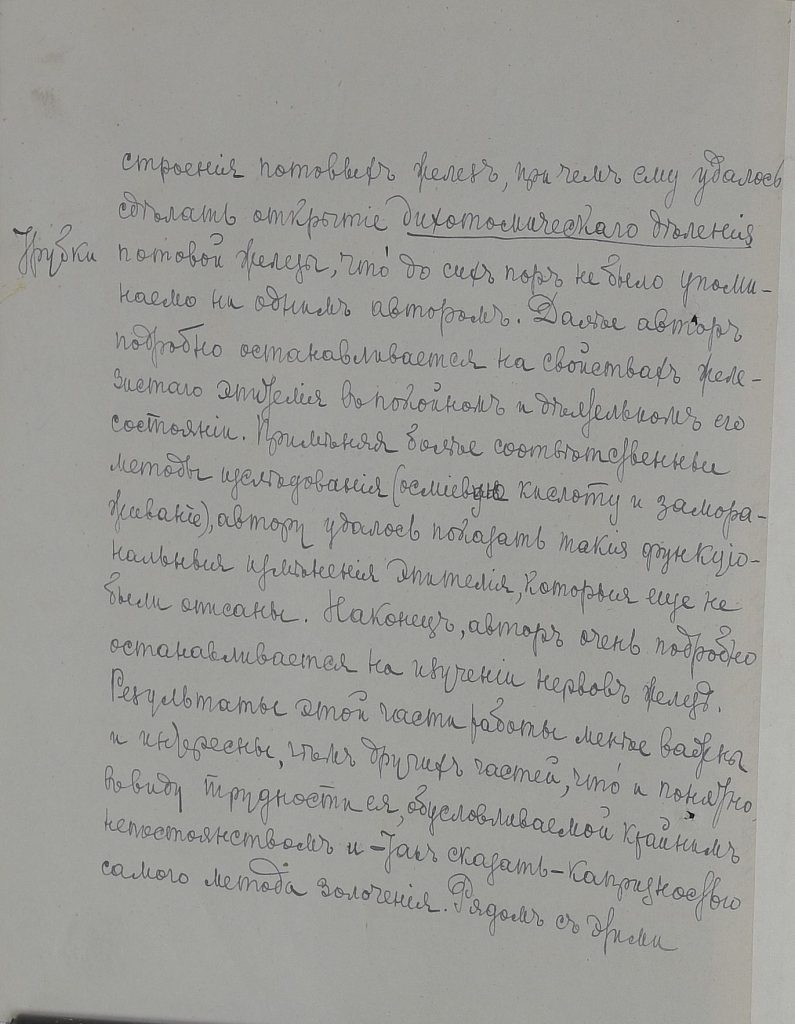 строенія потовыхъ железъ, при чемъ ему удалось
сдѣлать открытіе дихотомическаго дѣленія
трубки
потовой железы, что́ до сихъ поръ не было упоми-
наемо ни однимъ авторомъ. Далѣе авторъ
подробно останавливается на свойствахъ желе-
зистаго эпителія въ покойномъ и дѣятельномъ его
состояніи. Примѣняя болѣе соотвѣтственные
методы изслѣдованія (осміевую кислоту и замора-
живаніе), автору удалось показать такія функціо-
нальныя измѣненія эпителія, которыя еще не
были описаны. Наконецъ, авторъ очень подробно
останавливается на изученіи нервовъ железъ.
Результаты этой части работы менѣе важны
и интересны, чѣмъ другихъ частей, что́ и понятно
въ виду трудности ея, обусловливаемой крайнимъ
непостоянствомъ и – такъ сказать – капризностью
самого метода золоченія. Рядомъ съ этими